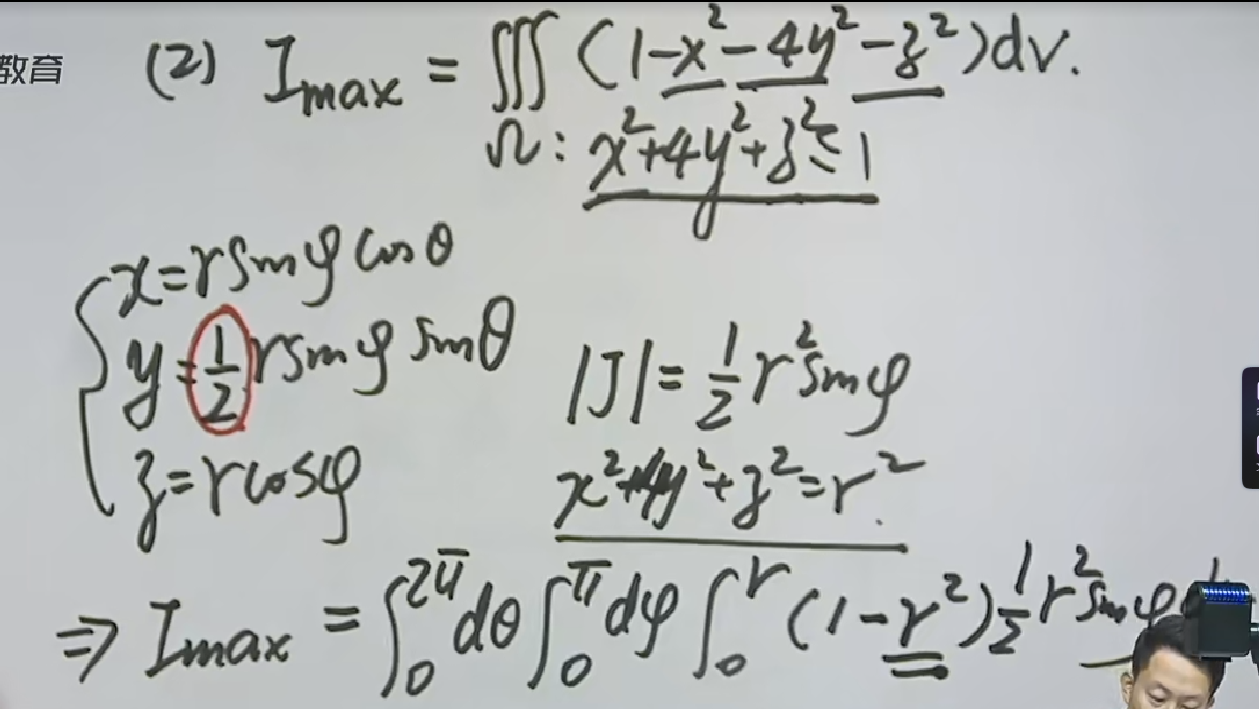 教育
(2) Imax = ∭ (1-x²-4y²-z²)dv.
Ω: x²+4y²+z²≤1
x=rsinφcosθ
y=1/2rsinφsinθ
|J|=1/2r²sinφ
z=rcosφ
x²+4y²+z²=r².
⇒ Imax = ∫₀^2π dθ ∫₀^π dφ ∫₀^r (1-r²)1/2r²sinφ